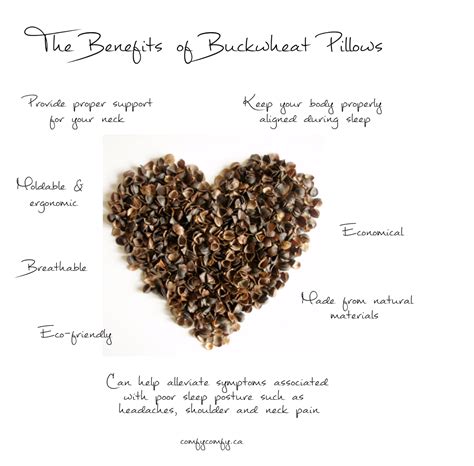 The Benefits of Buckwheat Pillows
Provide proper support
for your neck
Keep your body properly
aligned during sleep
Moldable &
ergonomic
Economical
Breathable
Made from natural
materials
Eco-friendly
Can help alleviate symptoms associated
with poor sleep posture such as
headaches, shoulder and neck pain
comfycomfy.ca